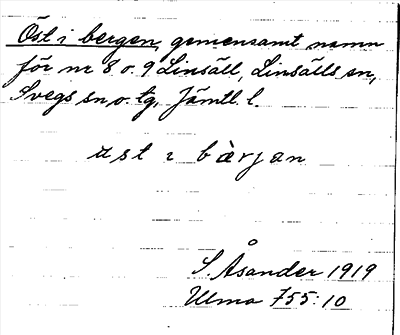 Öst i bergen, gemensamt namn
för nr 8 o. 9 Linsäll, Linsälls sn,
Svegs sn o. tg, Jämtl. l.
ɹst ı bàrjan
S Åsander 1919
Ulma 755:10